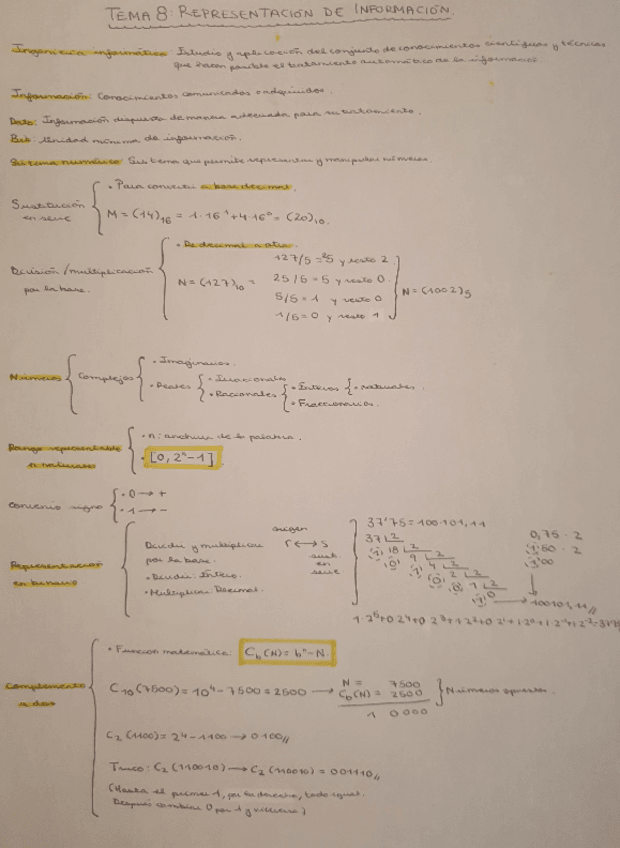 TEMA 8: REPRESENTACIÓN DE INFORMACIÓN.
Ingeniería informática: Estudio y aplicación del conjunto de conocimientos científicos y técnicos
que hacen posible el tratamiento automático de la información.
Información: Conocimientos comunicados o adquiridos.
Dato: Información dispuesta de manera adecuada para su tratamiento.
Bit: Unidad mínima de información.
Sistema numérico: Sistema que permite representar y manipular números.
Sustitución en serie
• Para convertir a base decimal.
M = (14)₁₆ = 1·16¹ + 4·16⁰ = (20)₁₀.
División/multiplicación por la base.
• De decimal a otra.
N = (127)₁₀ =
127/5 = 25 y resto 2
25/5 = 5 y resto 0
5/5 = 1 y resto 0
1/5 = 0 y resto 1
N = (1002)₅
Números
Complejos
• Imaginarios.
• Reales
• Irracionales
• Racionales
• Enteros
• naturales.
• Fraccionarios.
Rango representable n naturales
• n: anchura de la palabra.
• [0, 2ⁿ-1]
Convenio signo
• 0 → +
• 1 → -
Representación en binario
Dividir y multiplicar por la base.
• Dividir: Entero.
• Multiplicar: Decimal.
origen
r ↔ s
sust. en serie
37'75 = 100101,11
37 |2
18 |2
9 |2
4 |2
2 |2
1 |2
0
0,75 · 2
1'50 · 2
1'00
→ 100101,11//
Complemento a dos
• Función matemática: C_b(N) = bⁿ - N.
C₁₀(7500) = 10⁴ - 7500 = 2500 →
N = 7500
C_b(N) = 2500
1 0000
Números opuestos.
C₂(1100) = 2⁴ - 1100 → 0100//
Truco: C₂(110010) → C₂(110010) = 001110//
(Hasta el primer 1, por la derecha, todo igual.
Después cambiar 0 por 1 y viceversa)